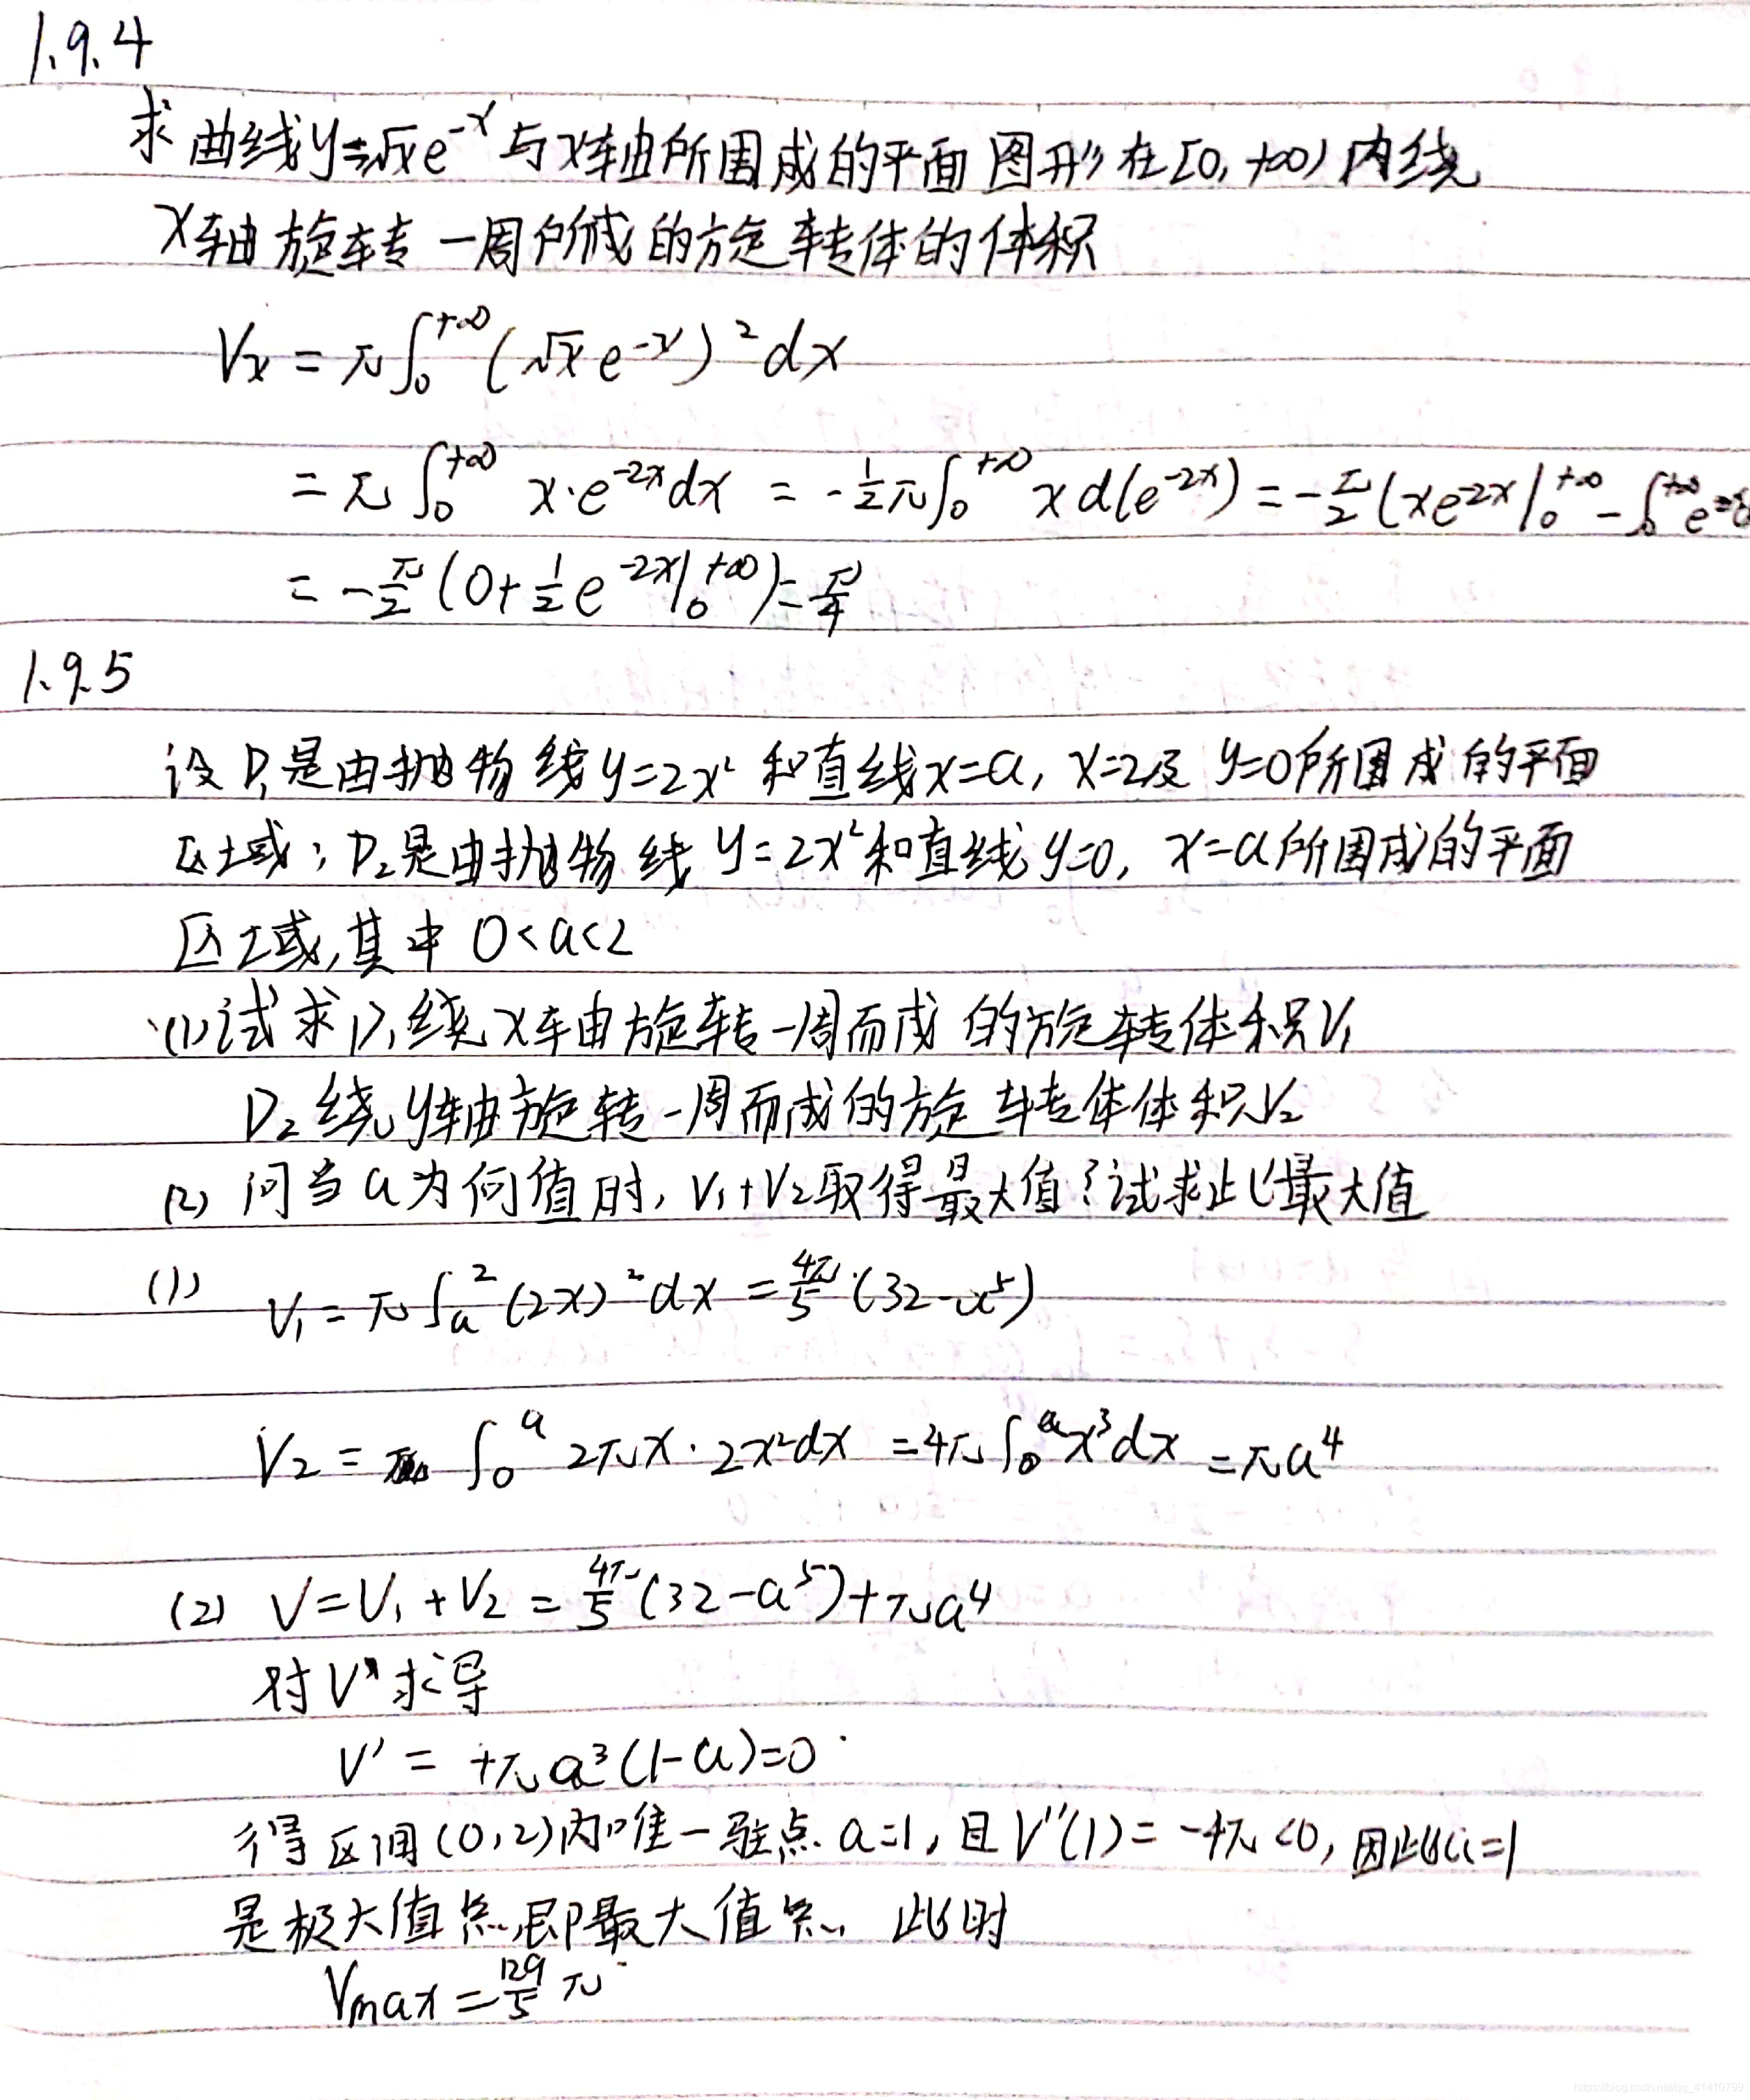 1.9.4
求曲线y=√x e^{-x} 与x轴所围成的平面图形在[0,+∞)内绕
x轴旋转一周所成的旋转体的体积
Vx = π∫_0^{+∞} (√x e^{-x})^2 dx
= π∫_0^{+∞} x·e^{-2x}dx = -1/2 π∫_0^{+∞} x d(e^{-2x}) = -π/2 (xe^{-2x}|_0^{+∞} - ∫_0^{+∞} e^{-2x}
= -π/2 (0+1/2 e^{-2x}|_0^{+∞}) = π/4
1.9.5
设D₁是由抛物线y=2x² 和直线x=a, x=2及 y=0所围成的平面
区域;D₂是由抛物线 y=2x²和直线y=0, x=a所围成的平面
区域,其中 0<a<2
(1)试求D₁绕x轴旋转一周而成的旋转体积V₁
D₂绕y轴旋转一周而成的旋转体体积V₂
(2) 问当a为何值时, V₁+V₂取得最大值?试求此最大值
(1) V₁ = π∫_a^2 (2x)^2 dx = 4π/5·(32-a^5)
V₂ = ∫_0^a 2πx·2x²dx = 4π∫_0^a x³dx = πa⁴
(2) V=V₁+V₂ = 4π/5 (32-a^5)+πa⁴
对V求导
V' = 4πa³(1-a)=0
得区间(0,2)内唯一驻点 a=1,且V''(1)= -4π<0, 因此a=1
是极大值点,即最大值点. 此时
Vmax = 129/5 π
https://blog.csdn.net/qq_41410799